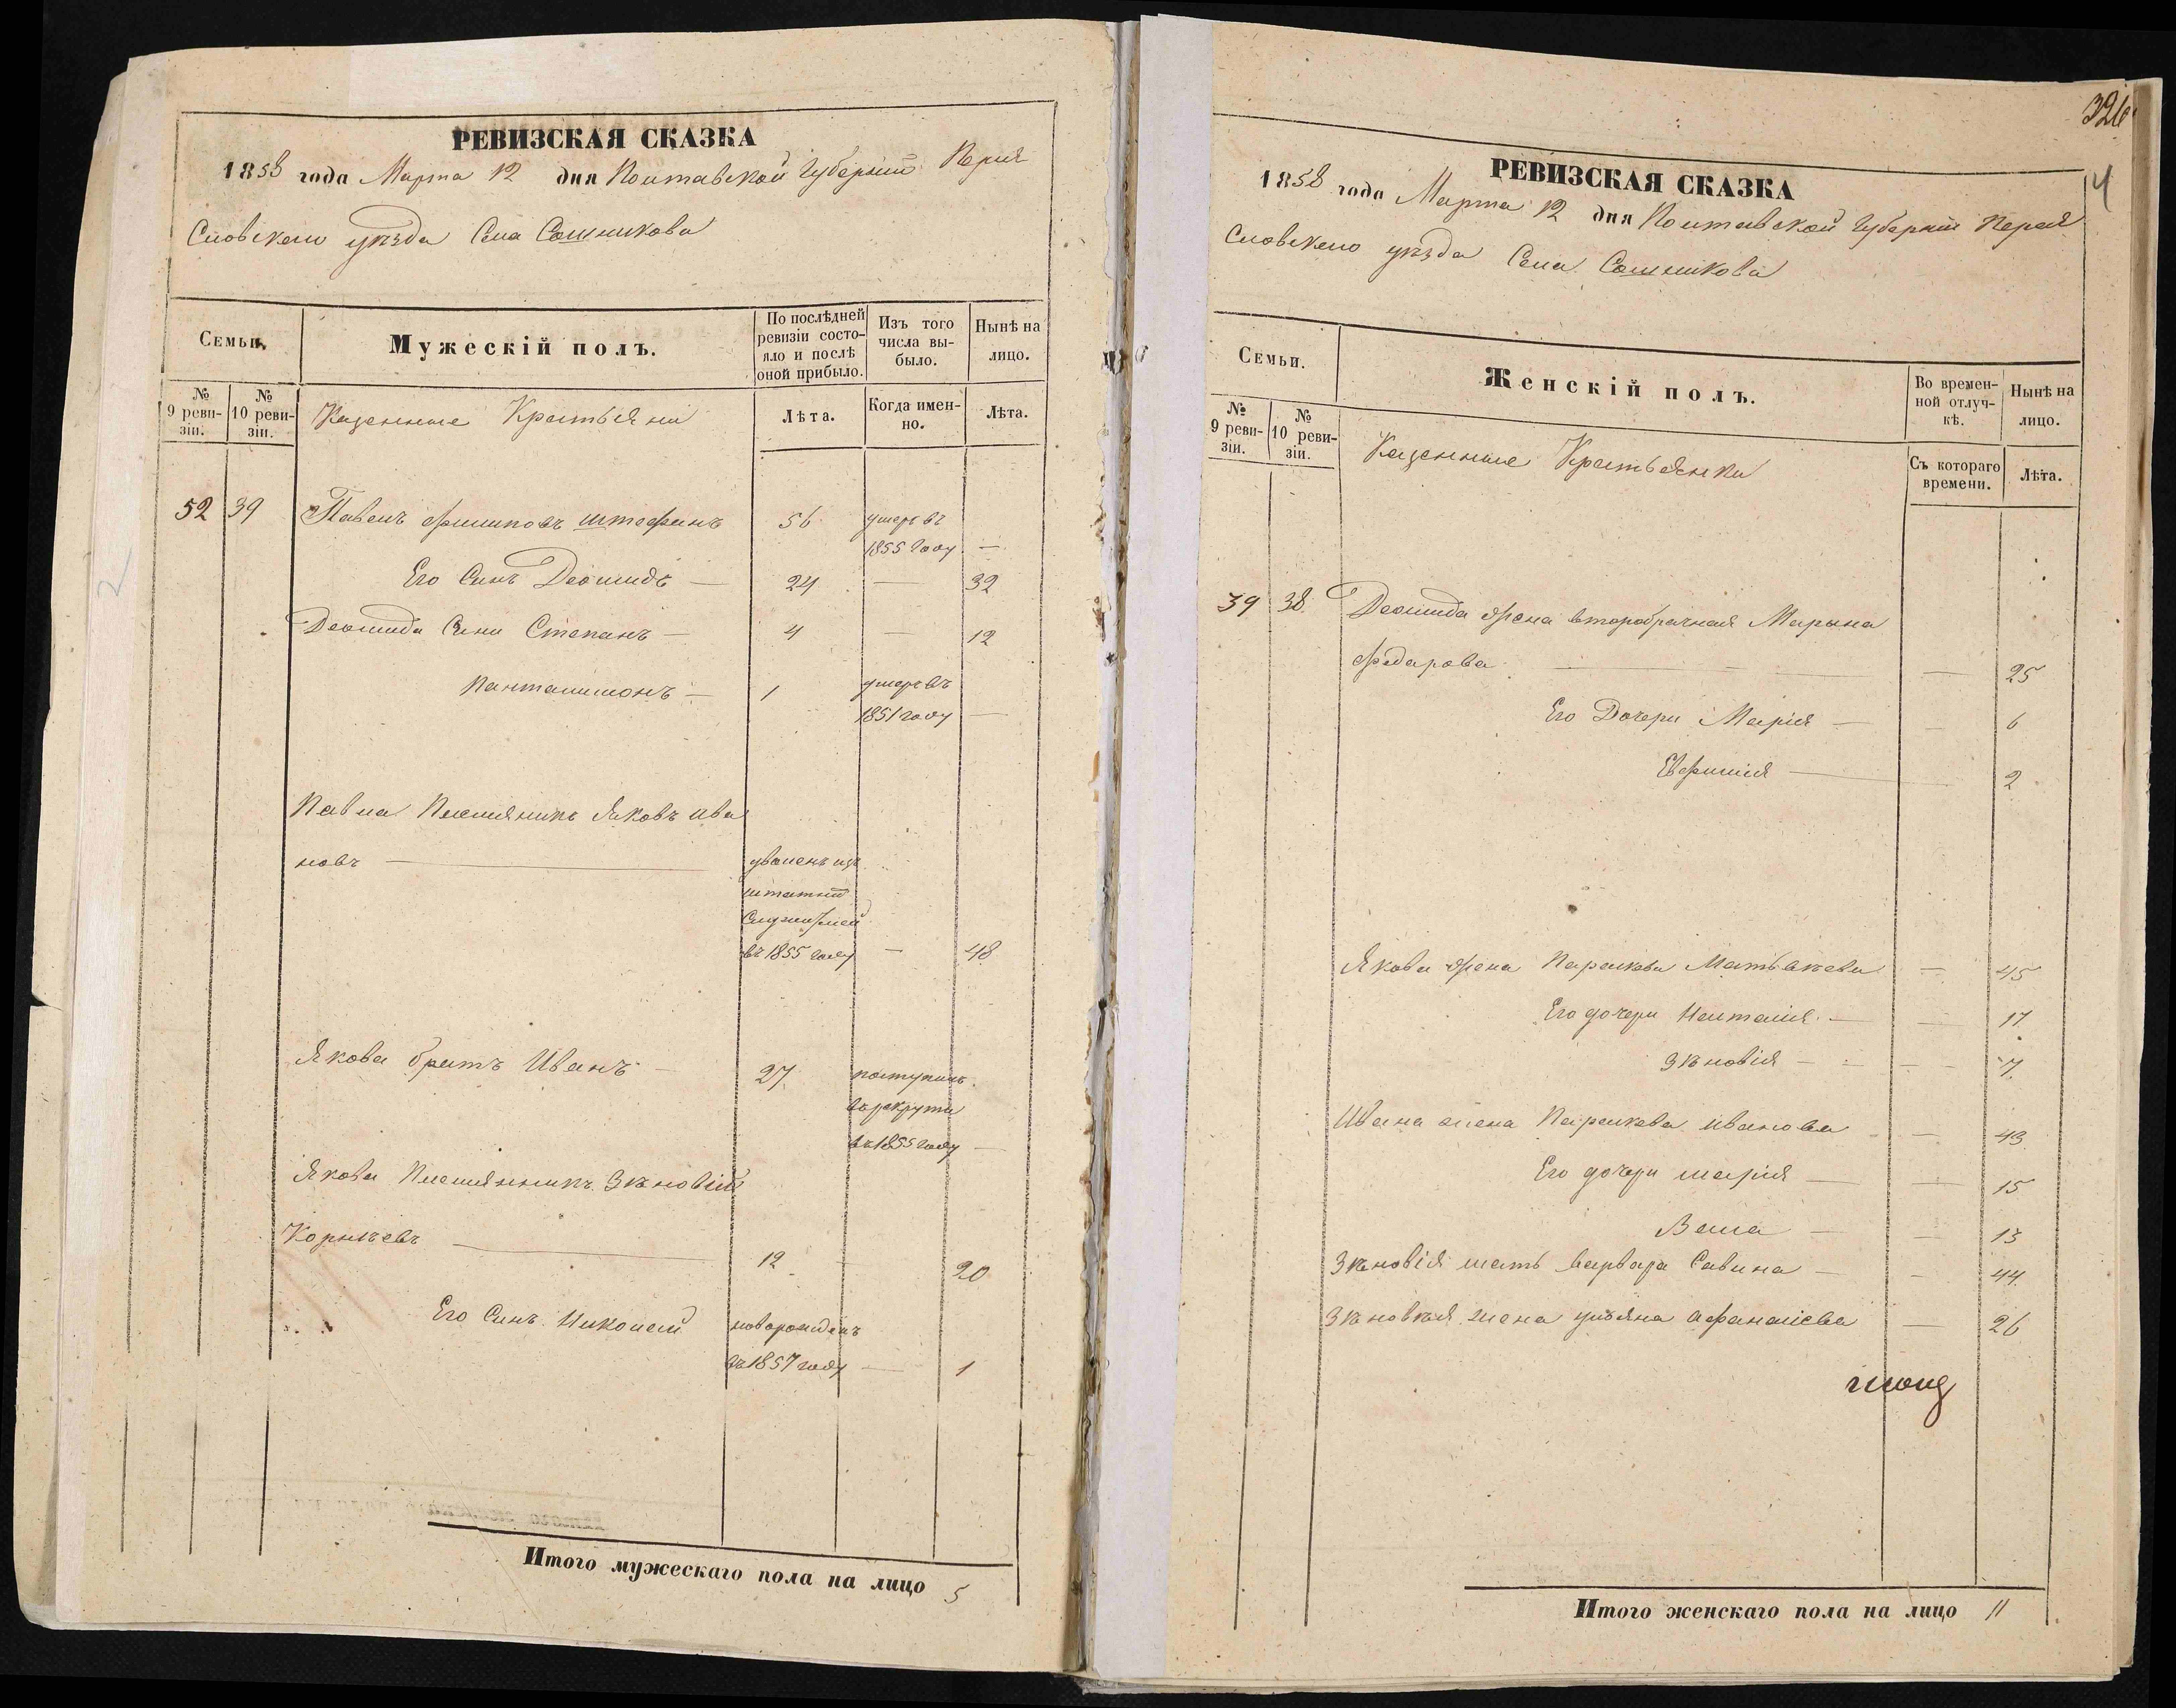 РЕВИЗСКАЯ СКАЗКА
1858 года Марта 12 дня Полтавской Губернии Перия
Словского уѣзда Села Сошникова
Семьи.
Мужескій полъ.
По послѣдней ревизіи состояло и послѣ оной прибыло.
Изъ того числа выбыло.
Нынѣ на лицо.
№ 9 ревизіи.
№ 10 ревизіи.
Казенные Крестьяни
Лѣта.
Когда именно.
Лѣта.
52 39 Павелъ Филиповъ Штефанъ 56 умеръ въ
1855 Году —
Его Синъ Деомидъ — 24 — 32
Деомида Сини Степанъ — 4 — 12
Пантелимонъ — 1 умеръ въ
1851 году —
Павла Племяникъ Яковъ Ива
новъ — уволенъ изъ
штатни
Служителей
въ 1855 году — 48
Якова братъ Иванъ — 27 поступилъ
въ рекруты
въ 1855 году —
Якова Племянникъ Зѣновій
Корнѣевъ — 12 — 20
Его Синъ Николай новорожденъ
въ 1857 году — 1
Итого мужескаго пола на лицо 5
326
4
РЕВИЗСКАЯ СКАЗКА
1858 года Марта 12 дня Полтавской Губернии Перея
Словского уѣзда Села Сошникова
Семьи.
Женскій полъ.
Во временной отлучкѣ.
Нынѣ на лицо.
№ 9 ревизіи.
№ 10 ревизіи.
Казенные Крестьянки
Съ котораго времени.
Лѣта.
39 38 Деомида жена второбрачная Марына
Федарова — — 25
Его Дочери Марія — 6
Евфимія — 2
Якова жена Параскева Матвѣева — 45
Его дочери Наталія — — 17
Зѣновія — — 7
Ивана жена Параскева Иванова — 43
Его дочери Марія — — 15
Васа — — 13
Зѣновія мать Варвара Савина — — 44
Зѣновѣя жена Ульяна Афанасіева — 26
Итого женскаго пола на лицо 11
2